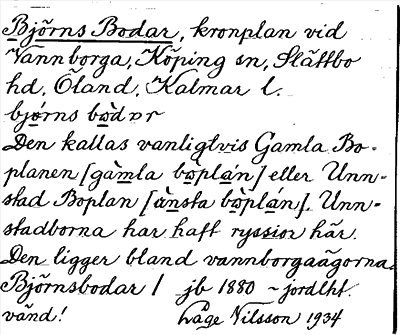 Björns Bodar, kronplan vid
Vannborga, Köping sn, Slättbo
hd, Öland, Kalmar l.
bjǫ́rns bǫ̀dɒr
Den kallas vanligtvis Gamla Bo-
planen [gàmla bǫplán] eller Unn-
stad Boplan [ànsta bǫ̀plán]. Unn-
stadborna har haft ryssjor här.
Den ligger bland vannborgaägorna.
Björnsbodar / jb 1880 ~ jordlht.
vänd! Låge Nilsson 1934